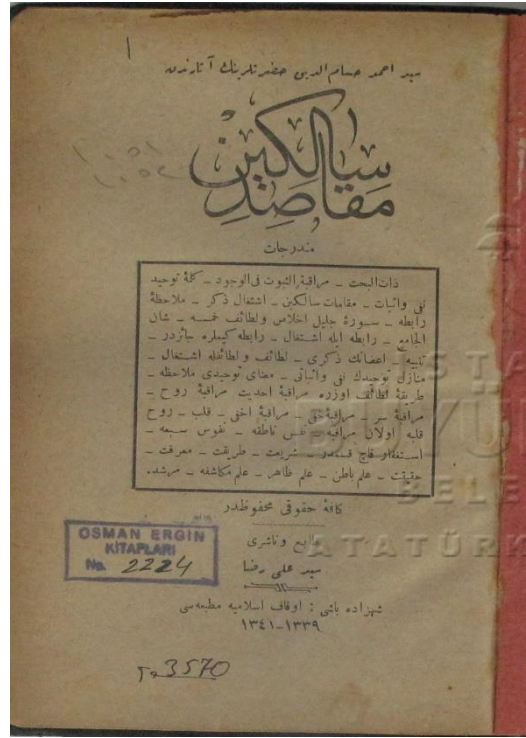 سيد احمد حسام الدين حضرتلرينك آثارندن
مقاصد سالكين
مندرجات
ذات البحت ــ مراقبة الثبوت فى الوجود ــ كلمۀ توحيد
نفى واثبات ــ مقامات سالكين ــ اشتغال ذكر ــ ملاحظۀ
رابطه ــ سورۀ جليل اخلاص ولطائف خمسه ــ شان
الجامع ــ رابطه ايله اشتغال ــ رابطه كيملره جائزدر ــ
تنبيه ــ اعضانك ذكرى ــ لطائف ولطائفله اشتغال ــ
منازل توحيدك نفى واثباتى ــ معناى توحيدى ملاحظه ــ
طريقۀ لطائف اوزره مراقبۀ احديت مراقبۀ روح ــ
مراقبۀ سر ــ مراقبۀ خفى ــ مراقبۀ اخفى ــ قلب ــ روح
قلبه اولان مراقبه ــ نفس ناطقه ــ نفوس سبعه ــ
استغفار قاچ قسمدر ــ شريعت ــ طريقت ــ معرفت ــ
حقيقت ــ علم باطن ــ علم ظاهر ــ علم مكاشفه ــ مرشد.
كافۀ حقوقى محفوظدر
طابع وناشرى
سيد على رضا
شهزاده باشى : اوقاف اسلاميه مطبعه سى
١٣٣٩-١٣٤١
OSMAN ERGİN
KİTAPLARI
No. 2224
3570
İSTA
BÜYÜ
BELE
ATATÜRK